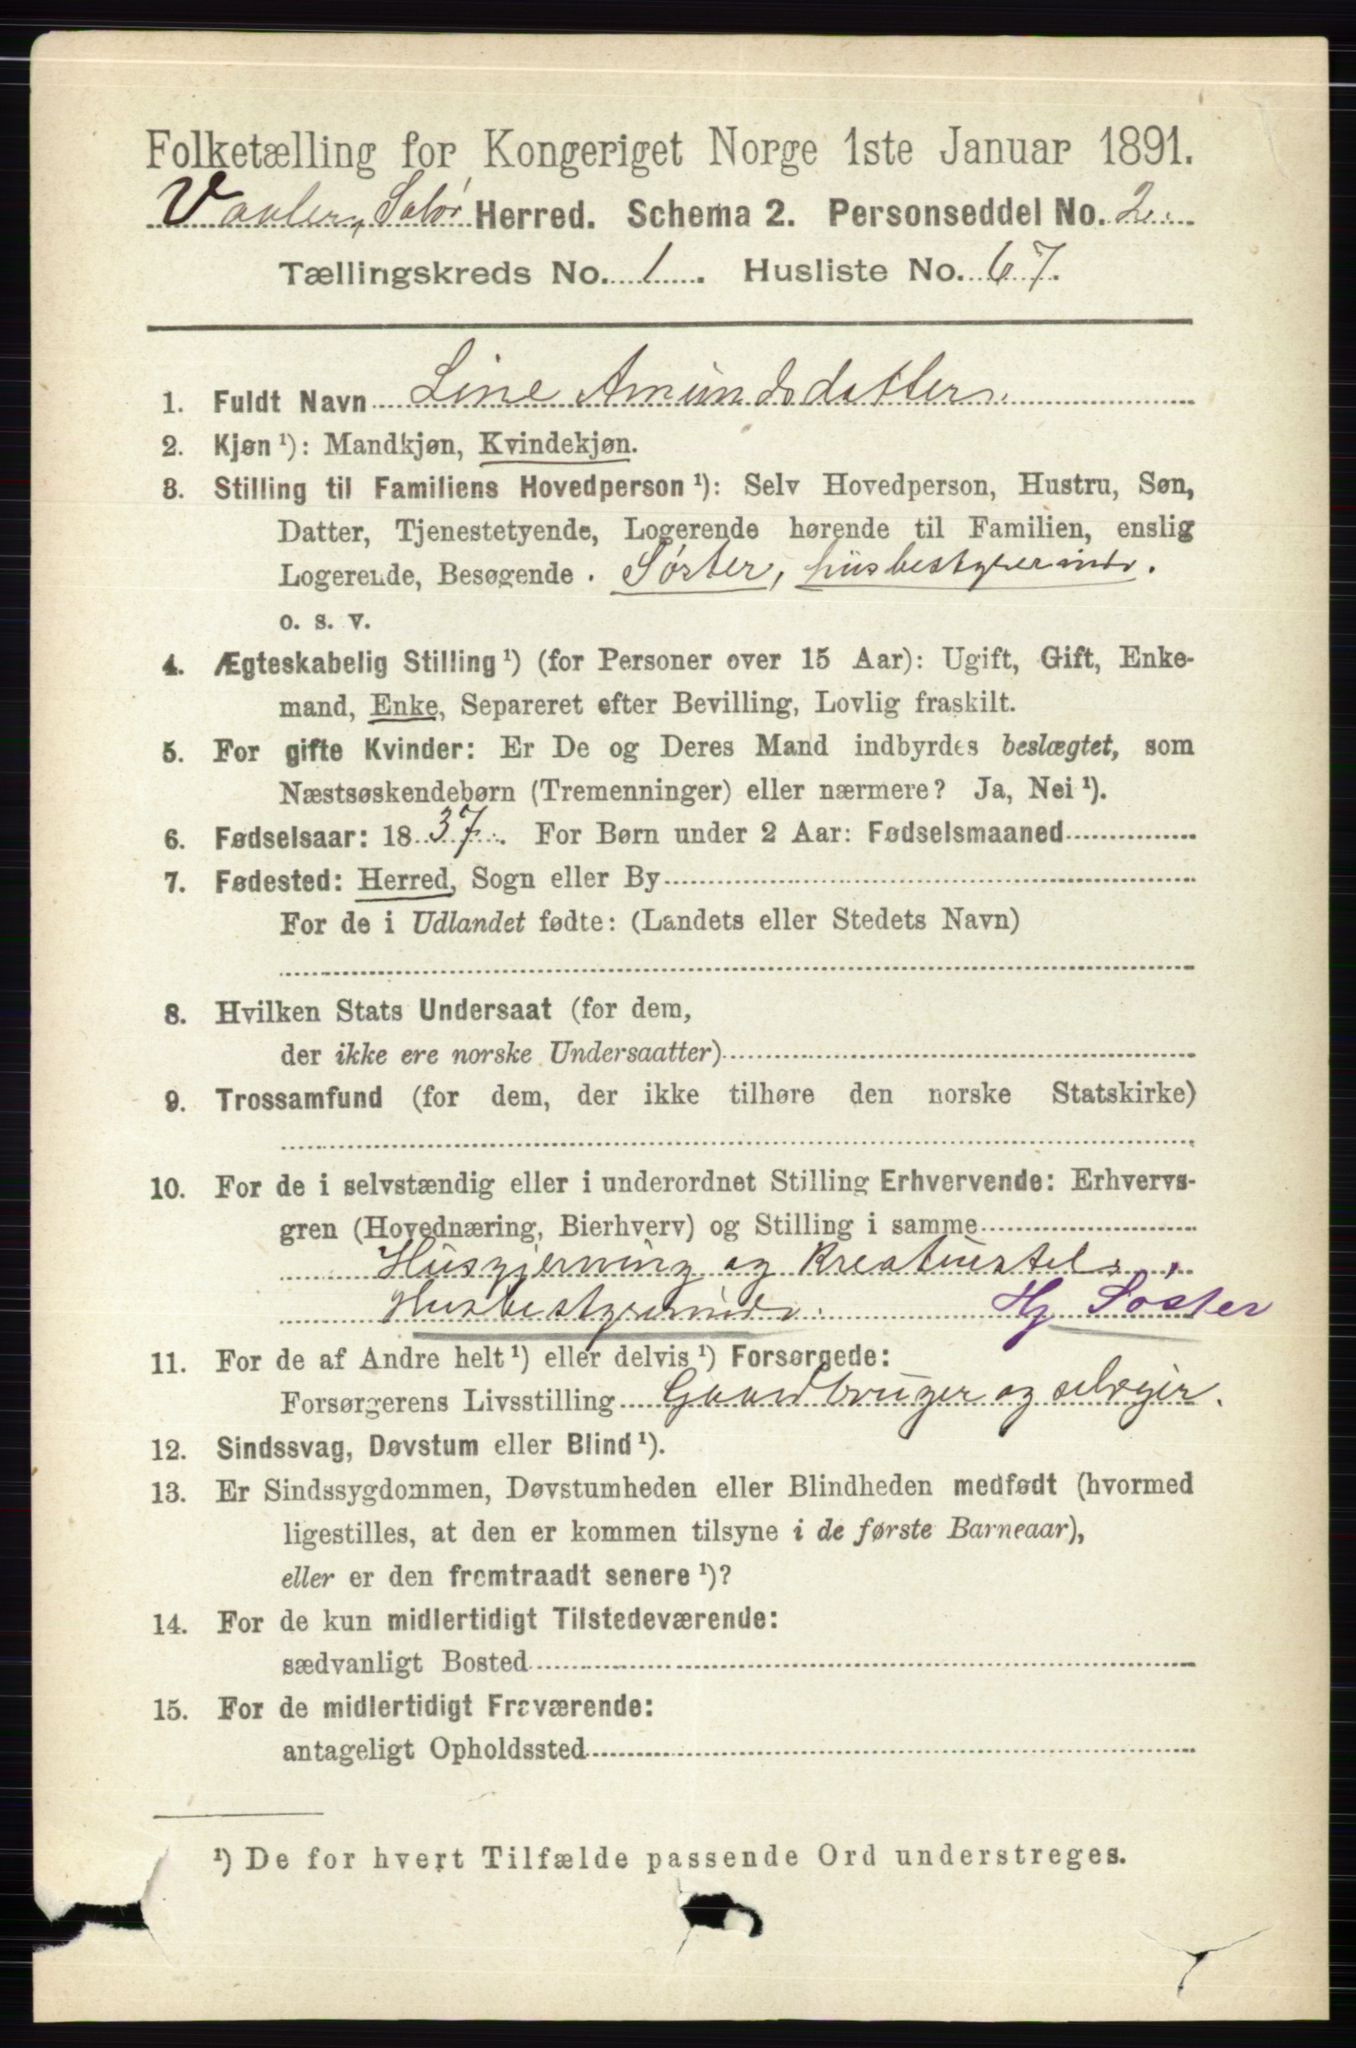 Folketælling for Kongeriget Norge 1ste Januar 1891.
Vaaler, Solør Herred. Schema 2. Personseddel No. 2.
Tællingskreds No. 1. Husliste No. 67.
1. Fuldt Navn Line Amundsdatter.
2. Kjøn ¹): Mandkjøn, Kvindekjøn.
3. Stilling til Familiens Hovedperson ¹): Selv Hovedperson, Hustru, Søn,
Datter, Tjenestetyende, Logerende hørende til Familien, enslig
Logerende, Besøgende . Søster, husbestyrerinde.
o. s. v.
4. Ægteskabelig Stilling ¹) (for Personer over 15 Aar): Ugift, Gift, Enke-
mand, Enke, Separeret efter Bevilling, Lovlig fraskilt.
5. For gifte Kvinder: Er De og Deres Mand indbyrdes beslægtet, som
Næstsøskendebørn (Tremenninger) eller nærmere? Ja, Nei ¹).
6. Fødselsaar: 1837. For Børn under 2 Aar: Fødselsmaaned
7. Fødested: Herred, Sogn eller By
For de i Udlandet fødte: (Landets eller Stedets Navn)
8. Hvilken Stats Undersaat (for dem,
der ikke ere norske Undersaatter)
9. Trossamfund (for dem, der ikke tilhøre den norske Statskirke)
10. For de i selvstændig eller i underordnet Stilling Erhvervende: Erhvervs-
gren (Hovednæring, Bierhverv) og Stilling i samme
Husgjerning og Kreaturstel,
Husbestyrerinde. Hg Søster
11. For de af Andre helt ¹) eller delvis ¹) Forsørgede:
Forsørgerens Livsstilling Gaardbruger og selveier.
12. Sindssvag, Døvstum eller Blind ¹).
13. Er Sindssygdommen, Døvstumheden eller Blindheden medfødt (hvormed
ligestilles, at den er kommen tilsyne i de første Barneaar),
eller er den fremtraadt senere ¹)?
14. For de kun midlertidigt Tilstedeværende:
sædvanligt Bosted
15. For de midlertidigt Fraværende:
antageligt Opholdssted
¹) De for hvert Tilfælde passende Ord understreges.